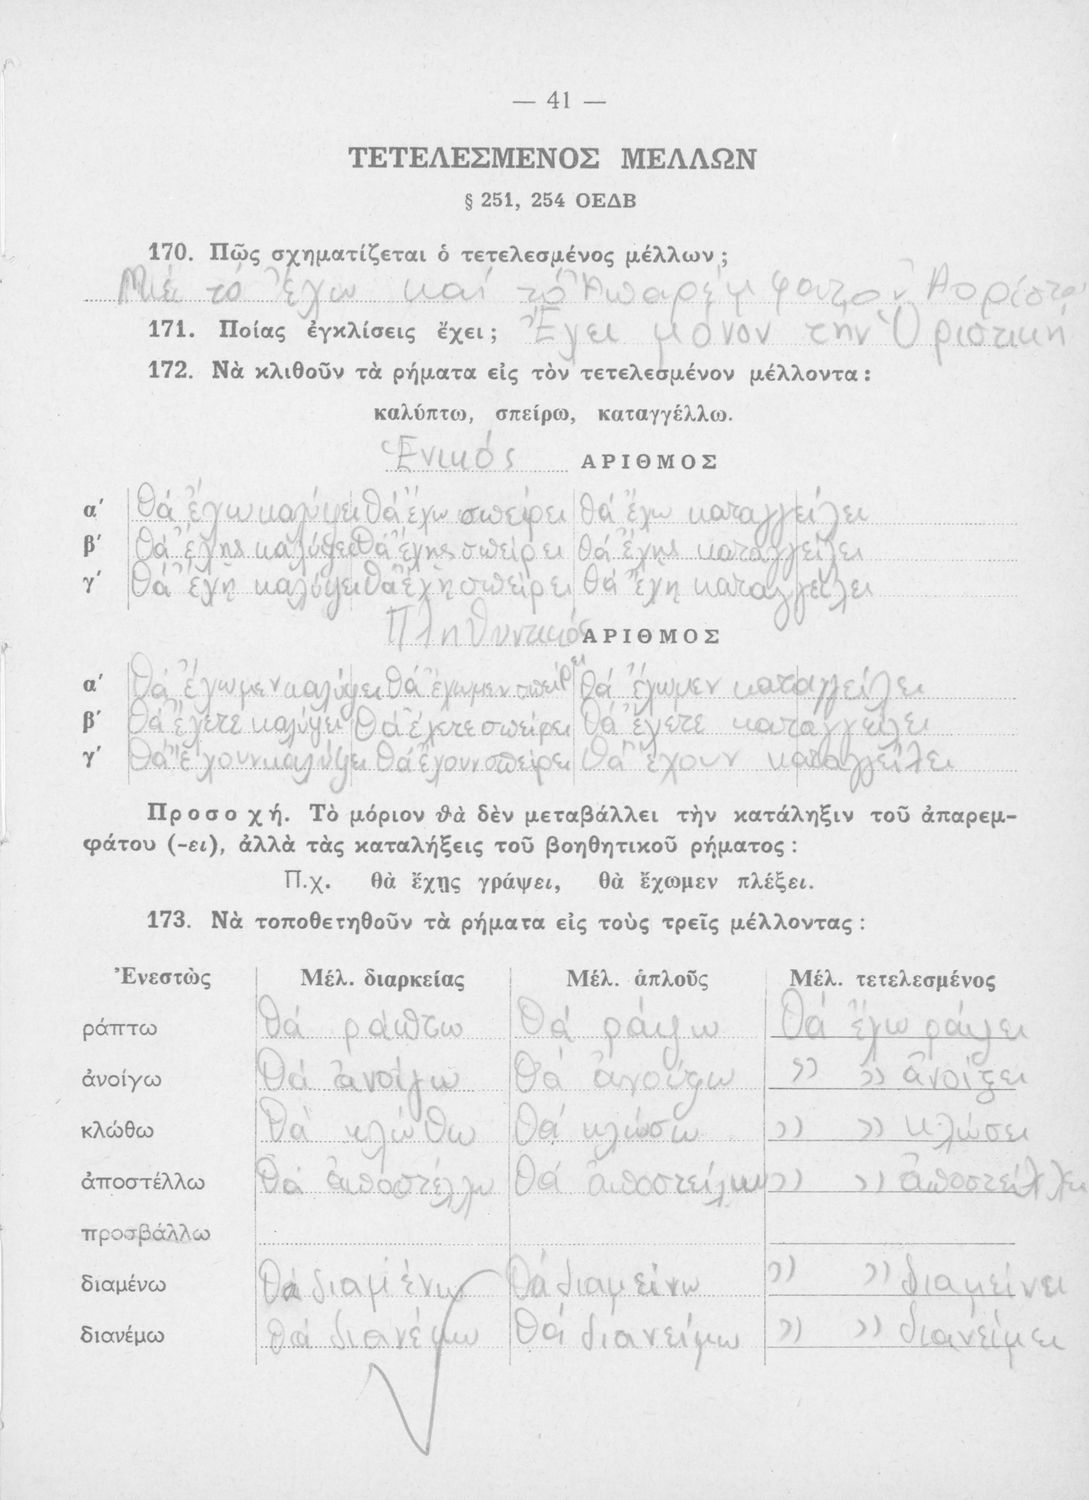 — 41 —
ΤΕΤΕΛΕΣΜΕΝΟΣ ΜΕΛΛΩΝ
§ 251, 254 ΟΕΔΒ
170. Πῶς σχηματίζεται ὁ τετελεσμένος μέλλων;
Μέ τό ἔχω καί τό Ἀπαρέμφατον Ἀορίστου
171. Ποίας ἐγκλίσεις ἔχει; Ἔχει μόνον τήν Ὁριστική
172. Νὰ κλιθοῦν τὰ ρήματα εἰς τὸν τετελεσμένον μέλλοντα:
καλύπτω, σπείρω, καταγγέλλω.
Ἑνικός ΑΡΙΘΜΟΣ
α΄ Θά ἔχω καλύψει Θά ἔχω σπείρει Θά ἔχω καταγγείλει
β΄ Θά ἔχης καλύψει Θά ἔχης σπείρει Θά ἔχης καταγγείλει
γ΄ Θά ἔχῃ καλύψει Θά ἔχῃ σπείρει Θά ἔχῃ καταγγείλει
Πληθυντικός ΑΡΙΘΜΟΣ
α΄ Θά ἔχωμεν καλύψει Θά ἔχωμεν σπείρει Θά ἔχωμεν καταγγείλει
β΄ Θά ἔχετε καλύψει Θά ἔχετε σπείρει Θά ἔχετε καταγγείλει
γ΄ Θά ἔχουν καλύψει Θά ἔχουν σπείρει Θά ἔχουν καταγγείλει
Προσοχή. Τὸ μόριον θὰ δὲν μεταβάλλει τὴν κατάληξιν τοῦ ἀπαρεμ-
φάτου (-ει), ἀλλὰ τὰς καταλήξεις τοῦ βοηθητικοῦ ρήματος:
Π.χ. θὰ ἔχῃς γράψει, θὰ ἔχωμεν πλέξει.
173. Νὰ τοποθετηθοῦν τὰ ρήματα εἰς τοὺς τρεῖς μέλλοντας:
Ἐνεστὼς Μέλ. διαρκείας Μέλ. ἁπλοῦς Μέλ. τετελεσμένος
ράπτω Θά ράπτω Θά ράψω Θά ἔχω ράψει
ἀνοίγω Θά ἀνοίγω Θά ἀνοίξω )) )) ἀνοίξει
κλώθω Θά κλώθω Θά κλώσω )) )) κλώσει
ἀποστέλλω Θά ἀποστέλλω Θά ἀποστείλω )) )) ἀποστείλλει
προσβάλλω
διαμένω Θά διαμένω Θά διαμείνω )) )) διαμείνει
διανέμω Θά διανέμω Θά διανείμω )) )) διανείμει